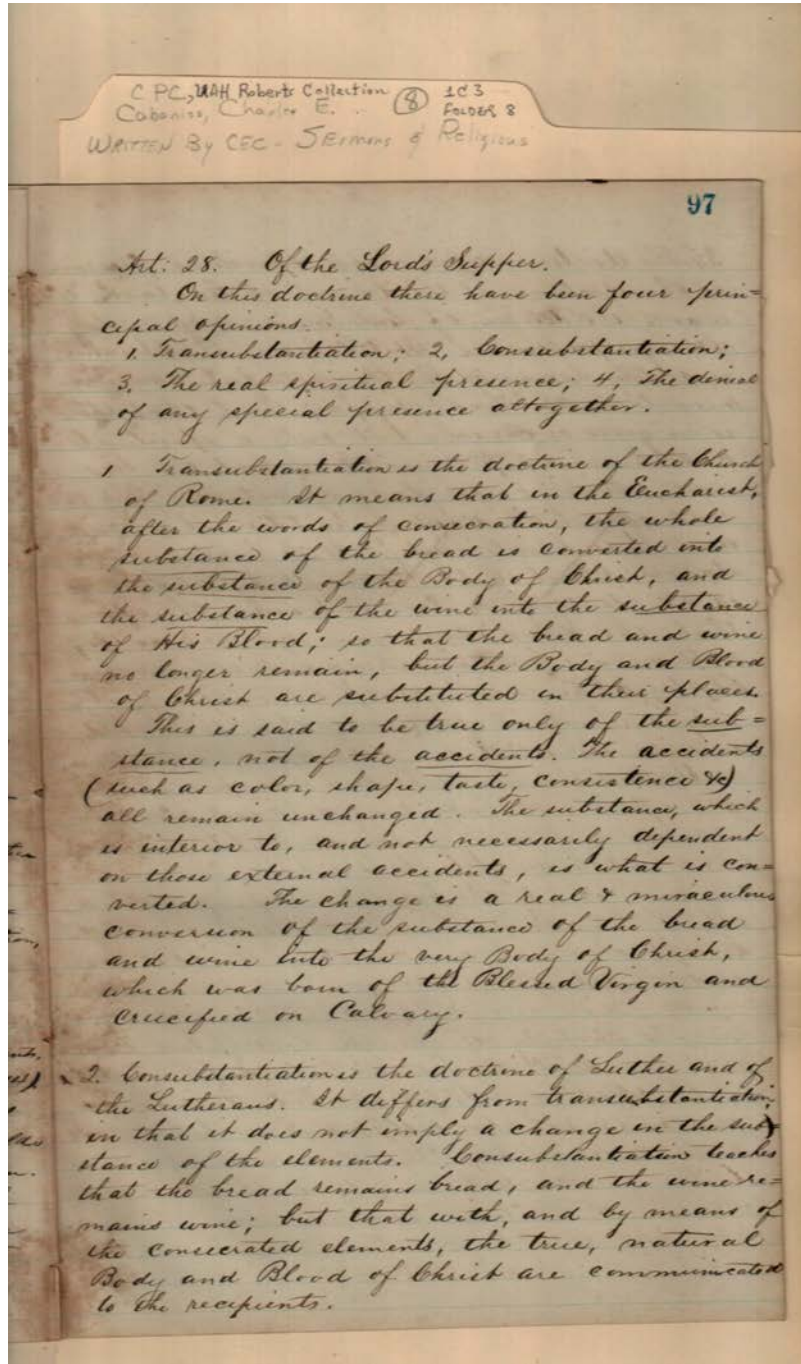 C PC, UAH Roberts Collection 8 1C3
Cabaniss, Charles E. FOLDER 8
WRITTEN By CEC - SERmons & Religious
97
Art: 28. Of the Lord's Supper.
On this doctrine there have been four prin=
cipal opinions.
1. Transubstantiation; 2, Consubstantiation;
3. The real spiritual presence; 4, The denial
of any special presence altogether.
1 Transubstantiation is the doctrine of the Church
of Rome. It means that in the Eucharist,
after the words of consecration, the whole
substance of the bread is converted into
the substance of the Body of Christ, and
the substance of the wine into the substance
of His Blood; so that the bread and wine
no longer remain, but the Body and Blood
of Christ are substituted in their places.
This is said to be true only of the sub=
stance, not of the accidents. The accidents
(such as color, shape, taste, consistence &c)
all remain unchanged. The substance, which
is interior to, and not necessarily dependent
on those external accidents, is what is con=
verted. The change is a real & miraculous
conversion of the substance of the bread
and wine into the very Body of Christ,
which was born of the Blessed Virgin and
crucified on Calvary.
2. Consubstantiation is the doctrine of Luther and of
the Lutherans. It differs from transubstantiation,
in that it does not imply a change in the sub=
stance of the elements. Consubstantiation teaches
that the bread remains bread, and the wine re=
mains wine; but that with, and by means of
the consecrated elements, the true, natural
Body and Blood of Christ are communicated
to the recipients.